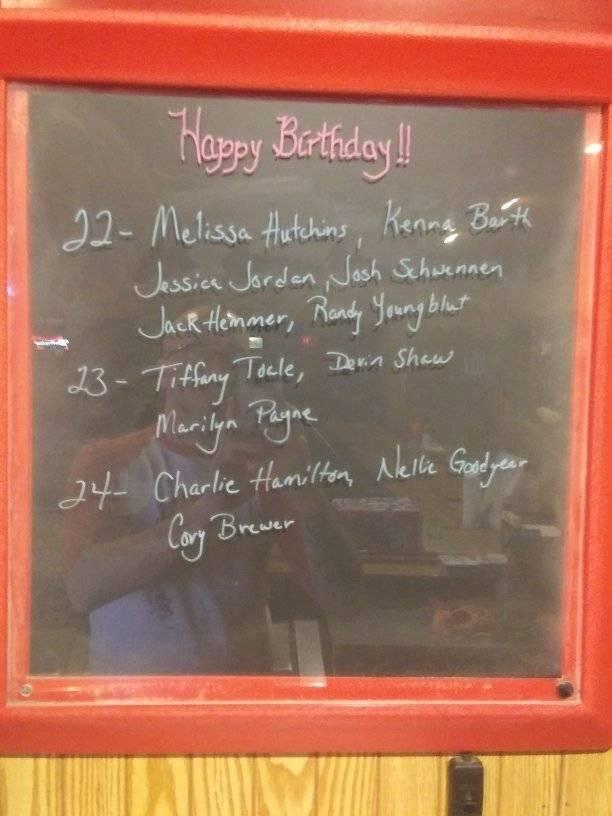 Happy Birthday!!
22- Melissa Hutchins, Kenna Barth
Jessica Jordan, Josh Schwennen
Jack Hemmer, Randy Youngblut
23- Tiffany Toale, Devin Shaw
Marilyn Payne
24- Charlie Hamilton, Nellie Goodyear
Cory Brewer